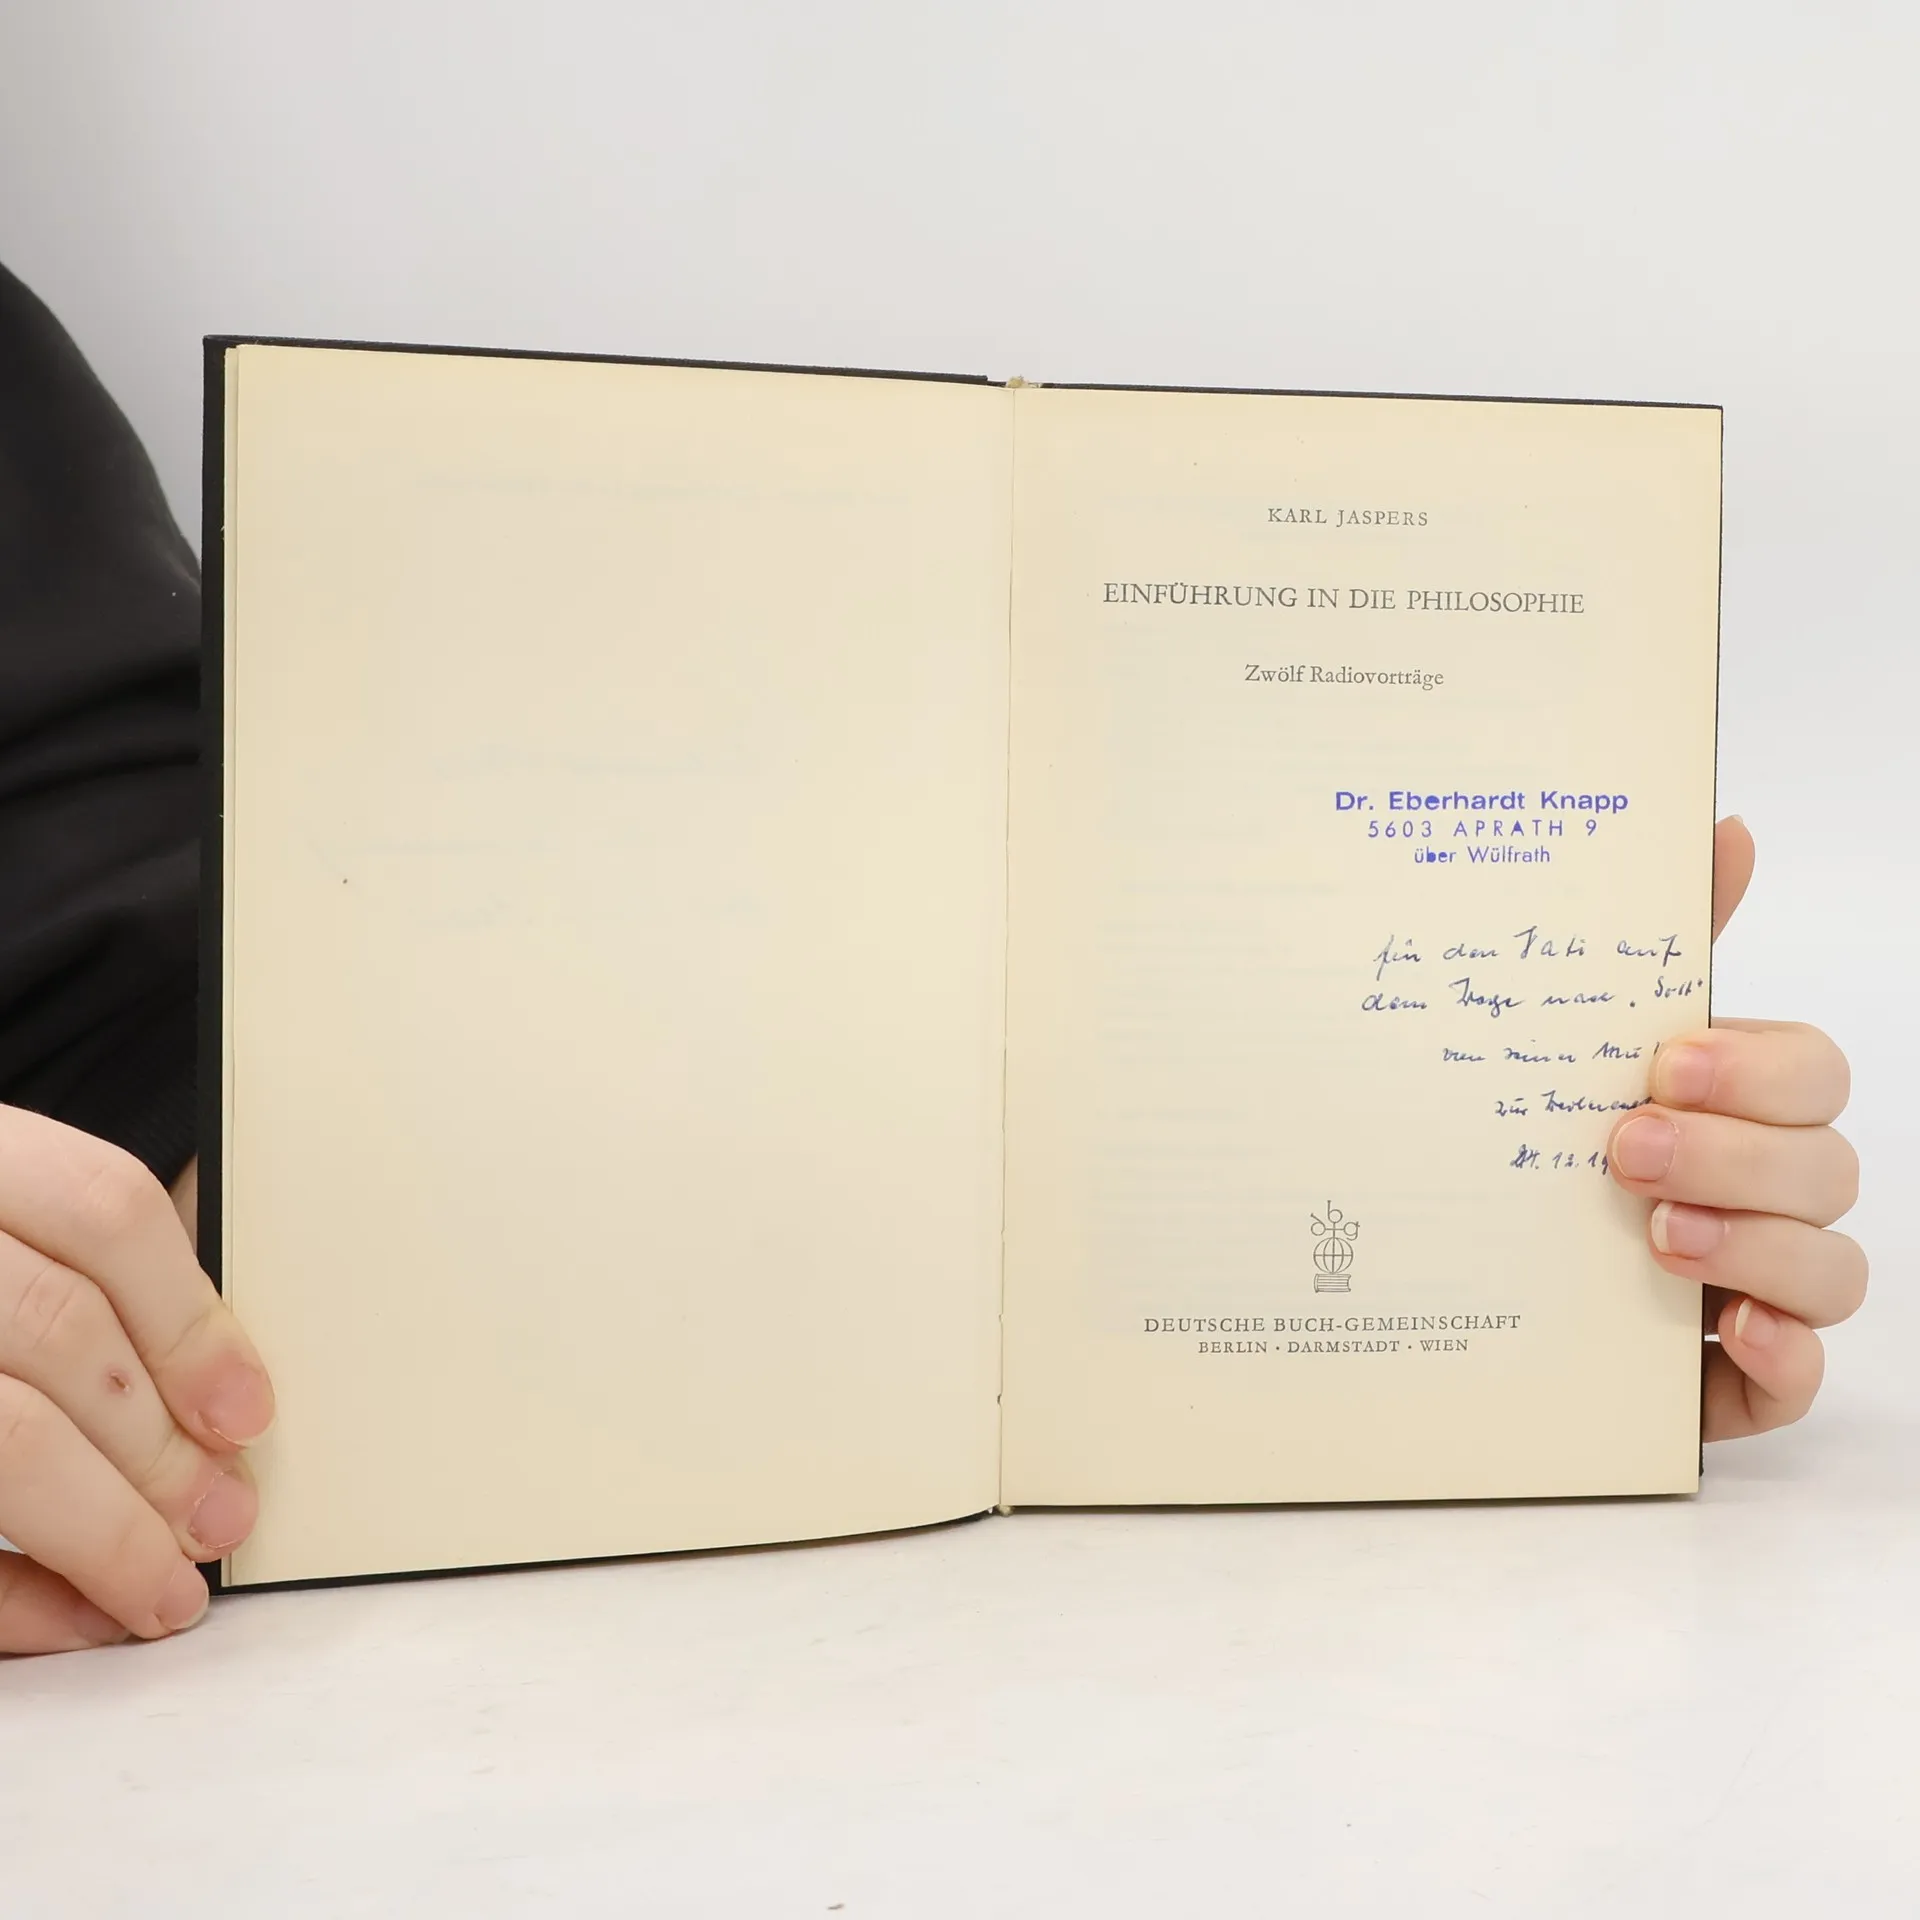 KARL JASPERS
EINFÜHRUNG IN DIE PHILOSOPHIE
Zwölf Radiovorträge
Dr. Eberhardt Knapp
5603 APRATH 9
über Wülfrath
für den Vati auf
dem Wege nach
von seiner
zur
24. 12. 19
dbg
DEUTSCHE BUCH-GEMEINSCHAFT
BERLIN · DARMSTADT · WIEN